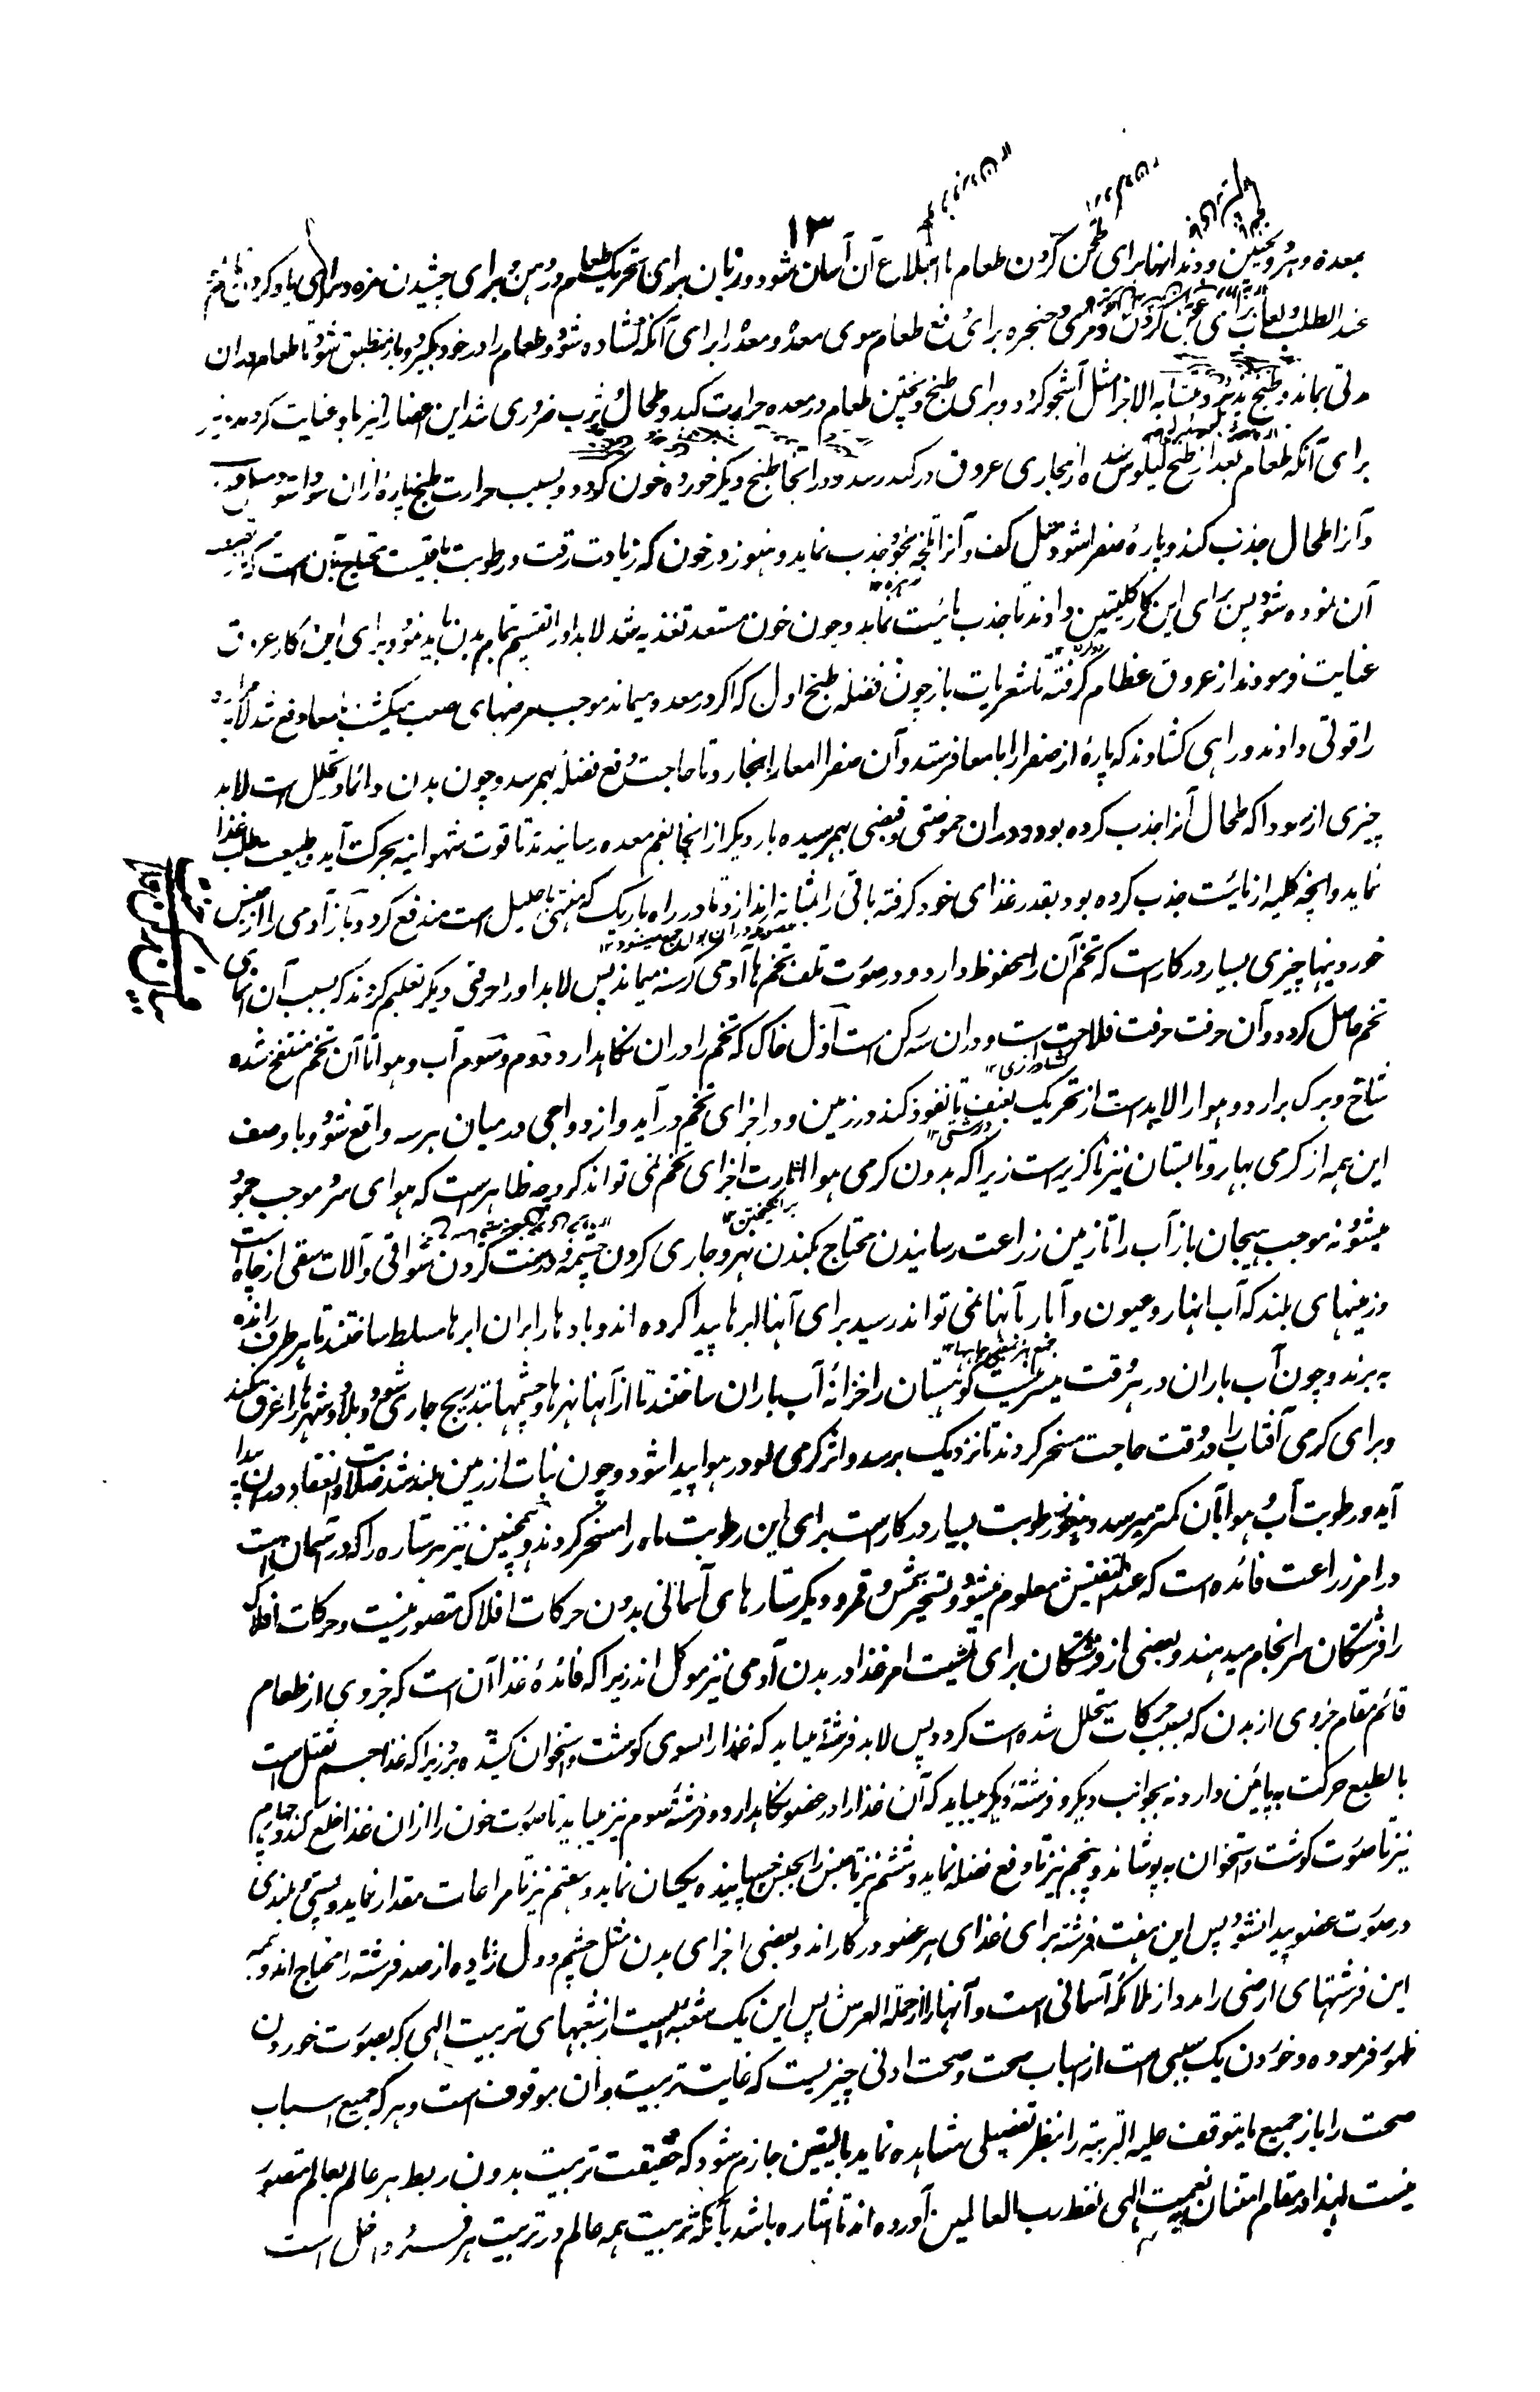 ۱۳
معده و هر دو لحیین و دندانها برای طحن کردن طعام تا ابتلاع آن آسان شود و زبان برای تحریک طعام در دهن و برای چشیدن مزه و
عند الطلب لعاب برای عجن کردن و مری و حنجره برای دفع طعام سوی معده و معده را برای آنکه کشاده شود و طعام را در خود بگیرد و باز منطبق شود تا طعام دران
مدتی بماند و طبخ پذیرد و متشابه الاجزا مثل آشجو گردد و برای طبخ و پختن طعام در معده حرارت کبد و طحال و ثرب ضروری شد این اعضا را نیز باو عنایت کردند و نیز
برای آنکه طعام بعد از طبخ کیلوس شده از مجاری عروق در کبد رسد و در انجا طبخ دیگر خورده خون گردد و بسبب حرارت طبخ پارهٔ ازان سودا شود
و آنرا طحال جذب کند و پارهٔ صفرا شود مثل کف و آنرا تلخه بخود جذب نماید و هنوز در خون که زیادت رقت و رطوبت باقیست محتاج بآن است که
آن نموده شود پس برای این کار کلیتین دادند تا جذب مائیت نماید و چون خون مستعد تغذیه شد لابد او را تقسیم بتمام بدن باید نمود و برای این کار عروق
عنایت فرمودند از عروق عظام گرفته تا شعریات باز چون فضله طبخ اول که اگر در معده میماند موجب مرضهای صعب میگشت بامعا دفع شد لابد
را قوتی دادند و راهی کشادند که پارهٔ از صفرا را بامعا فرستد و آن صفرا امعا را بخارد تا حاجت دفع فضله بهم رسد و چون بدن دائما در تحلل است لابد
چیزی از سودا که طحال آنرا جذب کرده بود و دران حموضتی و قبضی بهمرسیده بار دیگر از انجا بفم معده رسانیدند تا قوت شهوانیه بحرکت آید و طبیعت طلب غذا
نماید و آنچه کلیه از مائیت جذب کرده بود بقدر غذای خود گرفته باقی را بمثانه اندازد تا در راه باریک که منتهی باحلیل است مندفع گردد و باز آدمی را از جنس
خوردنیها چیزی بسیار در کار است که تخم آن را محفوظ دارد و در صورت تلف تخم ها آدمی گرسنه میماند پس لابد او را حرفتی دیگر تعلیم کردند که بسبب آن
تخم حاصل گردد و آن حرفت حرفت فلاحت است و دران سه رکن است اول خاک که تخم را دران نگاهدارد دوم و سوم آب و هوا تا آن تخم منتفخ شده
کشاورزی ۱۲
شاخ و برگ برارد و هوا را لابد است از تحریک بعنف تا نفوذ کند در زمین و در اجزای تخم در آید و ازدواجی در میان هر سه واقع شود و با وصف
درشتی ۱۲
این همه از گرمی بهار و تابستان نیز ناگزیر است زیرا که بدون گرمی هوا اثارت اجزای تخم نمی تواند کرد چه ظاهر است که هوای سرد موجب جمود
برانگیختن ۱۲
میشود نه موجب هیجان باز آب را تا زمین زراعت رسانیدن محتاج بکندن نهر و جاری کردن چشمه و درست کردن سواقی و آلات سقی از چاه است
و زمینهای بلند که آب انهار و عیون و آبار بآنها نمی تواند رسید برای آنها ابرها پیدا کرده اند و بادها را بران ابرها مسلط ساختند تا هر طرف رانده
به برند و چون آب باران در هر وقت میسر نیست کوهستان را خزانهٔ آب باران ساختند تا از آنها نهرها و چشمها بتدریج جاری شود و بلاد و شهرها را غرق نکند
و برای گرمی آفتاب را در وقت حاجت مسخر کردند تا نزدیک برسد و اثر گرمی او در هوا پیدا شود و چون نبات از زمین بلند شد صلابت و انعقاد دران پیدا
آید و رطوبت آب و هوا بآن کمتر میرسد و هنوز رطوبت بسیار در کار است برای این رطوبت ماه را مسخر کردند و همچنین نیز هر ستاره را که در آسمان است
در امر زراعت فائده است که عند التفتیش معلوم میشود و تسخیر شمس و قمر و دیگر ستارهای آسمانی بدون حرکات افلاک متصور نیست و حرکات افلاک
را فرشتگان سرانجام میدهند و بعضی از فرشتگان برای تمشیت امر غذا در بدن آدمی نیز موکل اند زیرا که فائدهٔ غذا آن است که جزوی از طعام
قائم مقام جزوی از بدن که بسبب حرکات متحلل شده است گردد پس لابد فرشته میباید که غذا را بسوی گوشت و استخوان کشیده برد زیرا که غذا جسم ثقیل است
بالطبع حرکت به پایین دارد نه بجوانب دیگر و فرشتهٔ دیگر میباید که آن غذا را در عضو نگاهدارد و فرشتهٔ سوم نیز میباید تا صورت خون را ازان غذا خلع کند و چهارم
نیز تا صورت گوشت و استخوان به پوشاند و پنجم نیز تا دفع فضله نماید و ششم نیز تا جنس را بجنس چسپانیده یکسان نماید و هفتم نیز تا مراعات مقدار نماید و پستی و بلندی
در صورت عضو پیدا نشود پس این هفت فرشته برای غذای هر عضو در کار اند و بعضی اجزای بدن مثل چشم و دل زیاده از صد فرشته را محتاج اند و همه
این فرشتهای ارضی را مدد از ملائکه آسمانی است و آنها را از حملة العرش پس این یک شعبه ایست از شعبهای تربیت الهی که بصورت خوردن
ظهور فرموده و خوردن یک سببی است از اسباب صحت و صحت ادنی چیزیست که غایت تربیت بران موقوف است و هر که جمیع اسباب
صحت را باز جمیع مایتوقف علیه التربیة را بنظر تفصیلی مشاهده نماید بالیقین جازم شود که حقیقت تربیت بدون ربط هر عالم بعالم متصور
نیست لهذا در مقام امتنان نعمت الهی لفظ رب العالمین آورده اند تا اشاره باشد بآنکه تربیت همه عالم در تربیت هر فرد داخل است